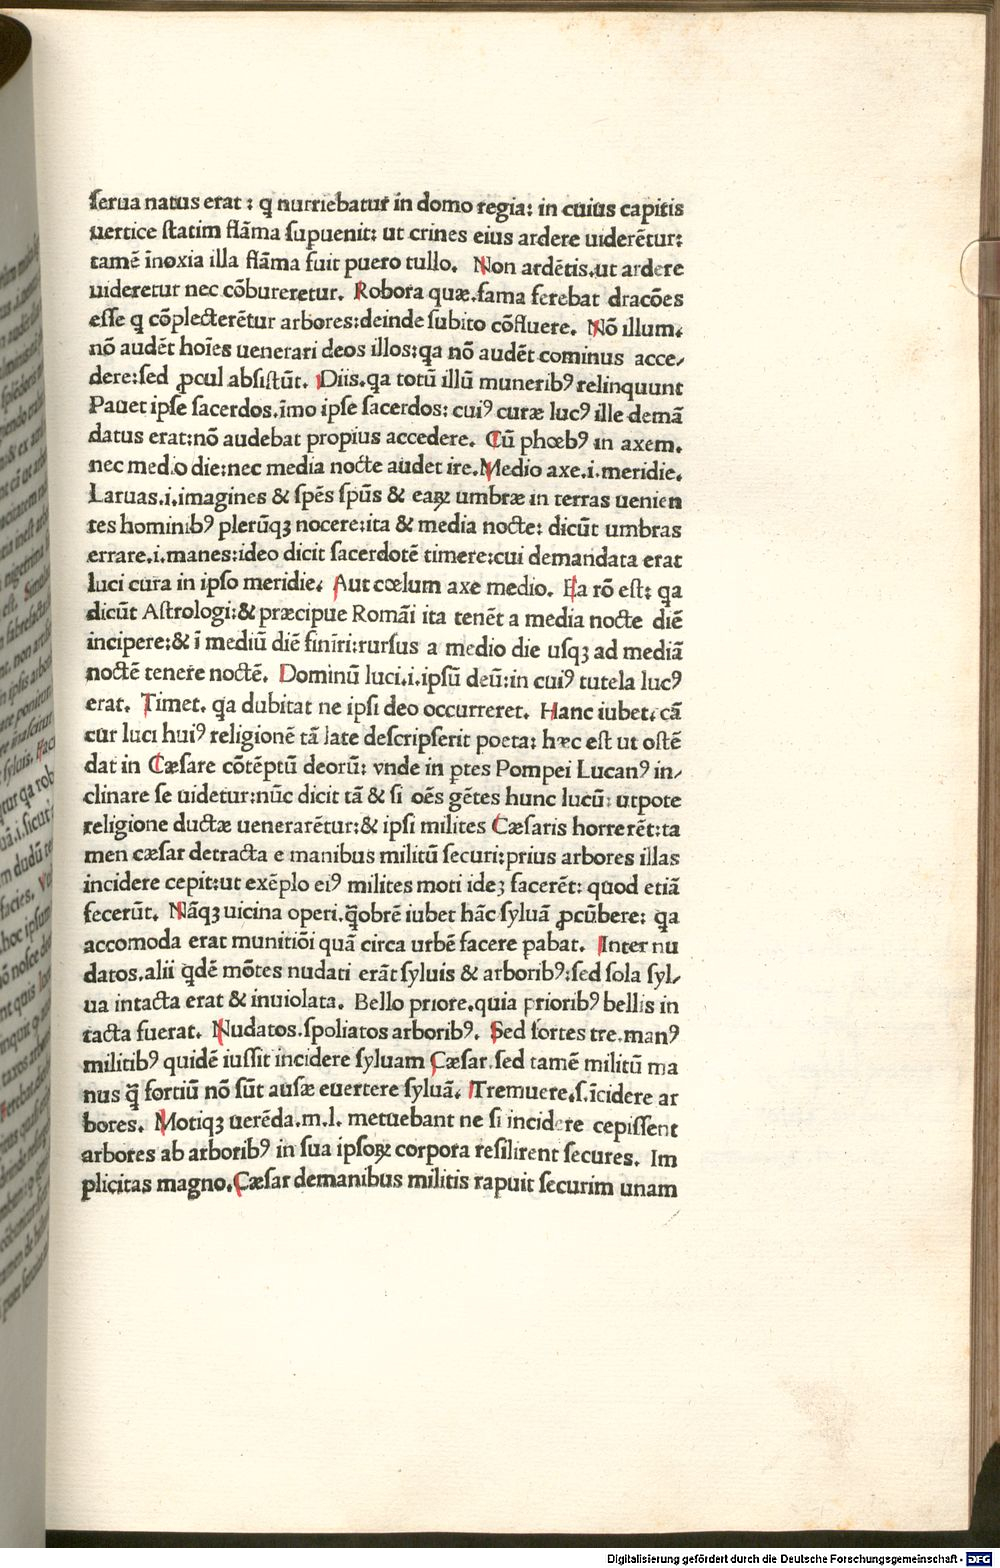 ſerua natus erat : q̄ nurriebatur in domo regia: in cuius capitis
uertice ſtatim flāma ſupuenit: ut crines eius ardere uiderētur:
tamē īnoxia illa flāma fuit puero tullo. Non ardētis.ut ardere
uideretur nec cōbureretur. Robora quæ.fama ferebat dracōes
eſſe q cōplecterētur arbores:deinde ſubito cōfluere. Nō illum.
nō audēt hoīes uenerari deos illos:qa nō audēt cominus acce/
dere:ſed ꝓcul abſiſtūt. Diis.qa totū illū munerib⁹ relinquunt
Pauet ipſe ſacerdos.īmo ipſe ſacerdos: cui⁹ curæ luc⁹ ille demā
datus erat:nō audebat propius accedere. Cū phœb⁹ in axem.
nec medio die:nec media nocte audet ire.Medio axe.i.meridie.
Laruas.i.imagines & ſpēs ſpūs & eaꝝ umbræ in terras uenien
tes hominib⁹ plerūqꝫ nocere:ita & media nocte: dicūt umbras
errare.i.manes:ideo dicit ſacerdotē timere:cui demandata erat
luci cura in ipſo meridie. Aut cœlum axe medio. Ea rō eſt: qa
dicūt Aſtrologi:& præcipue Romāi ita tenēt a media nocte diē
incipere:& ī mediū diē finīri:rurſus a medio die uſqꝫ ad mediā
noctē tenere noctē. Dominū luci.i.ipſū deū:in cui⁹ tutela luc⁹
erat. Timet. qa dubitat ne ipſi deo occurreret. Hanc iubet. cā
cur luci hui⁹ religionē tā late deſcripſerit poeta: hæc eſt ut oſtē
dat in Cæſare cōtēptū deorū: vnde in ꝑtes Pompei Lucan⁹ in/
clinare ſe uidetur:nūc dicit tā & ſi oēs gētes hunc lucū: utpote
religione ductæ uenerarētur:& ipſi milites Cæſaris horrerēt:ta
men cæſar detracta e manibus militū ſecuri:prius arbores illas
incidere cepit:ut exēplo ei⁹ milites moti ideꝫ facerēt: quod etiā
fecerūt. Nāqꝫ uicina operi.q̄obrē iubet hāc ſyluā ꝓcūbere: qa
accomoda erat munitiōi quā circa urbē facere pabat. Inter nu
datos.alii qdē mōtes nudati erāt ſyluis & arborib⁹:ſed ſola ſyl/
ua intacta erat & inuiolata. Bello priore.quia priorib⁹ bellis in
tacta fuerat. Nudatos.ſpoliatos arborib⁹. Sed fortes tre.man⁹
militib⁹ quidē iuſſit incidere ſyluam Cæſar.ſed tamē militū ma
nus q̄ fortiū nō ſūt auſæ euertere ſyluā. Tremuere.ſ.īcidere ar
bores. Motiqꝫ uerēda.m.l. metuebant ne ſi incidere cepiſſent
arbores ab arborib⁹ in ſua ipſoꝝ corpora reſilirent ſecures. Im
plicitas magno.Cæſar demanibus militis rapuit ſecurim unam
Digitalisierung gefördert durch die Deutsche Forschungsgemeinschaft - DFG